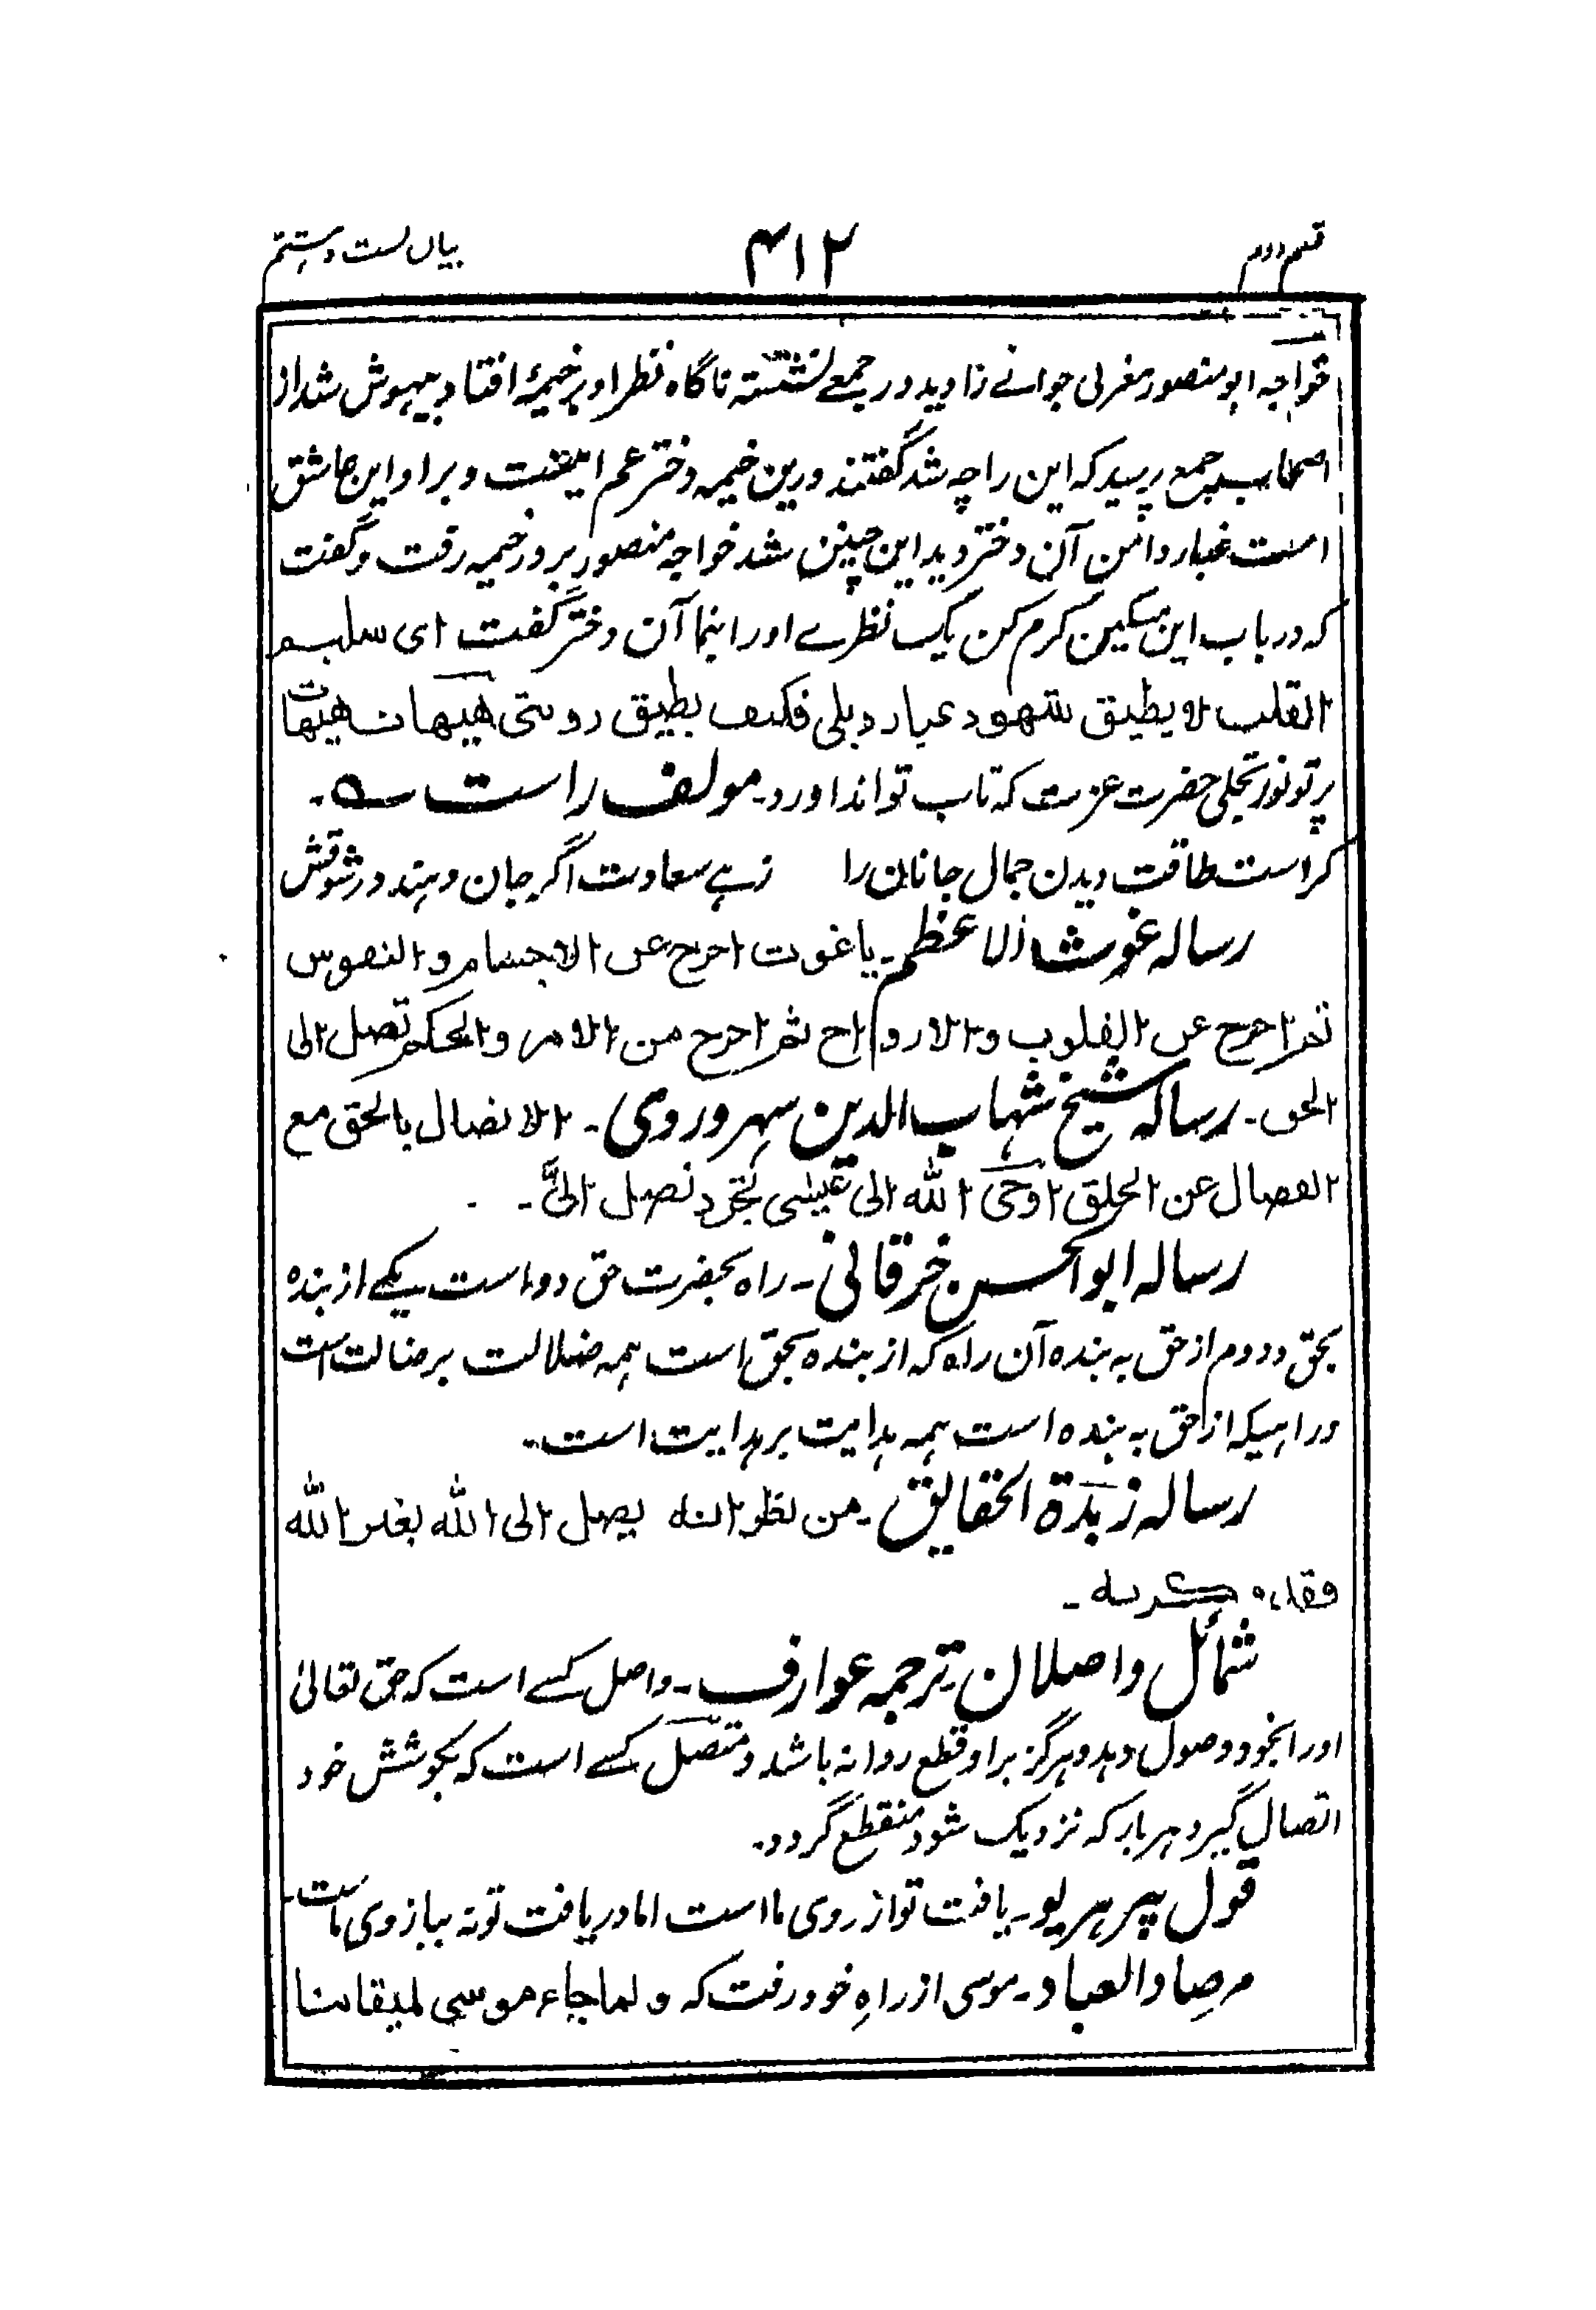 قسم دوم ۴۱۲ بیان بست و ہشتم
خواجہ ابو منصور مغربی جوانے را دید در جمعے نشستہ ناگاہ نظر او بر خیمۂ افتاد بیہوش شد از
اصحاب جمع پرسید کہ این را چہ شد گفتند درین خیمہ دختر عم اینست و بر او این عاشق
است غبار دامن آن دختر دید این چنین شد خواجہ منصور بر در خیمہ رفت و گفت
کہ در باب این مسکین کرم کن یک نظرے او را بنما آن دختر گفت ای سلیم
القلب لا یطیق شهود غبار ذیلی فکیف یطیق رویتی هیهات هیهات
پرتو نور تجلی حضرت عزت کہ تاب تواند اورد۔ مولف راست ؎۔
کراست طاقت دیدن جمال جانان را زہے سعادت اگر جان دہند در شوقش
رسالہ غوث الاعظم۔ یا غوث اخرج عن الاجسام و النفوس
ثم اخرج عن القلوب و الارواح ثم اخرج من الامر و الحکم تصل الی
الحق۔ رسالہ شیخ شہاب الدین سہروردی۔ الاتصال بالحق مع
انفصال عن الخلق اوحی الله الی عیسی تجرد تصل الیّ۔
رسالہ ابوالحسن خرقانی۔ راہ بحضرت حق دو است یکے از بندہ
بحق و دوم از حق بہ بندہ آن راہ کہ از بندہ بحق است ہمہ ضلالت بر ضلالت است
و راہیکہ از حق بہ بندہ است ہمہ ہدایت بر ہدایت است۔
رسالہ زبدۃ الحقایق۔ من نظر انه یصل الی الله بغیر الله
فقد مکر به۔
شمائل واصلان ترجمہ عوارف۔ واصل کسے است کہ حق تعالیٰ
او را بخود وصول دہد و ہرگز بر او قطع روا نہ باشد و متصل کسے است کہ بکوشش خود
اتصال گیرد ہر بار کہ نزدیک شود منقطع گردد۔
قول پیر ہریو۔ یافت تو از روی ما است اما دریافت تو نہ ببازوی ماست۔
مرصاد العباد۔ موسی از راہِ خود رفت کہ و لما جاء موسی لمیقاتنا